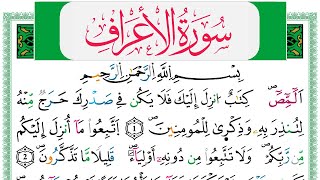 سُورَةُ الْأَعْرَافِ
بِسْمِ اللَّهِ الرَّحْمَٰنِ الرَّحِيمِ
الٓمٓصٓ ۚ كِتَٰبٌ أُنزِلَ إِلَيْكَ فَلَا يَكُن فِي صَدْرِكَ حَرَجٌ مِّنْهُ
لِتُنذِرَ بِهِۦ وَذِكْرَىٰ لِلْمُومِنِينَۖ ١ اَ۪تَّبِعُوا مَآ أُنزِلَ إِلَيْكُم
مِّن رَّبِّكُمْ وَلَا تَتَّبِعُوا مِن دُونِهِۦٓ أَوْلِيَآءَۖ قَلِيلًا مَّا تَذَّكَّرُونَۖ ٢